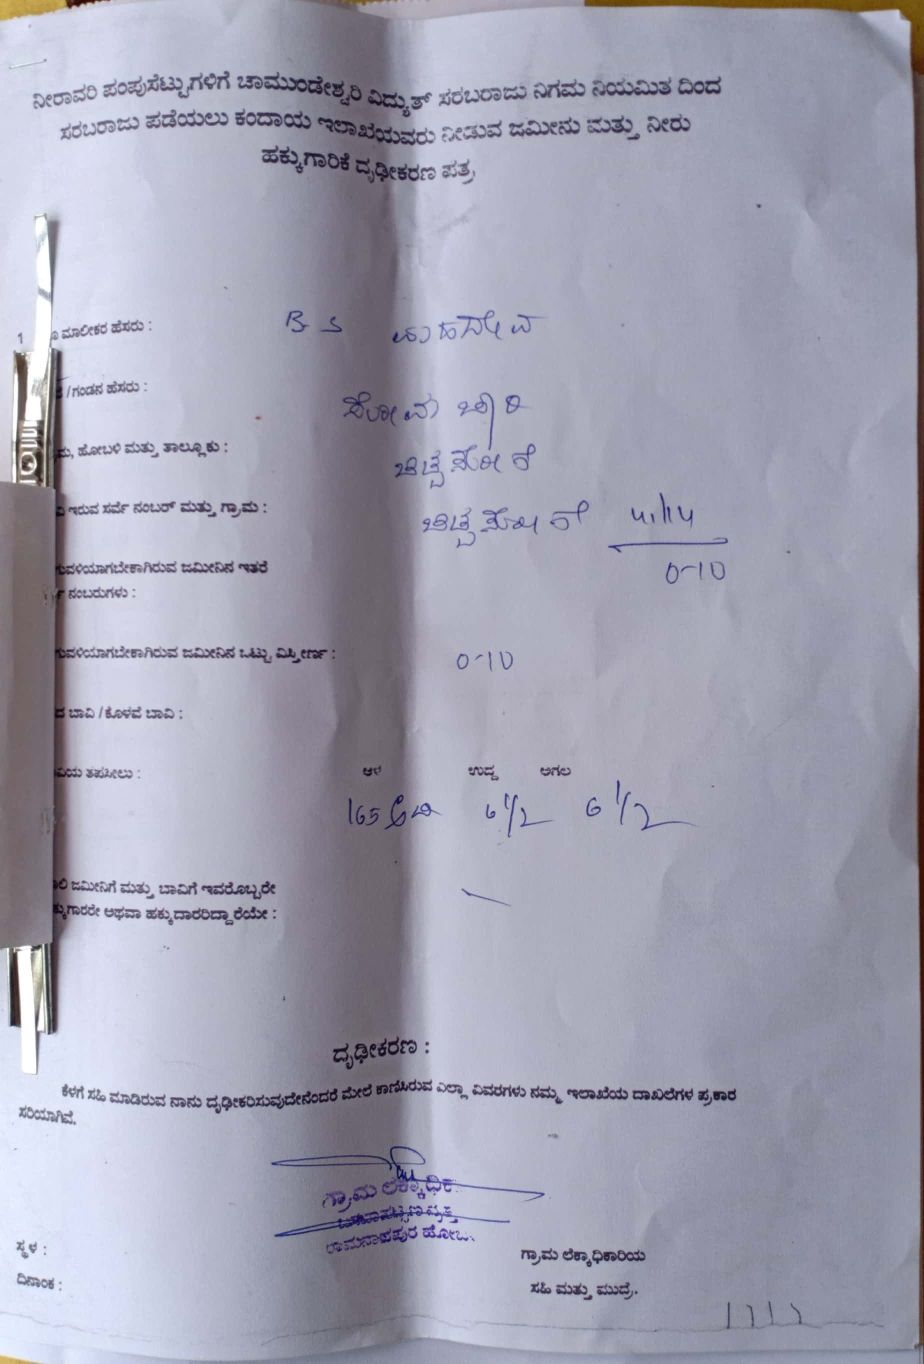 ನೀರಾವರಿ ಪಂಪುಸೆಟ್ಟುಗಳಿಗೆ ಚಾಮುಂಡೇಶ್ವರಿ ವಿದ್ಯುತ್ ಸರಬರಾಜು ನಿಗಮ ನಿಯಮಿತ ದಿಂದ
ಸರಬರಾಜು ಪಡೆಯಲು ಕಂದಾಯ ಇಲಾಖೆಯವರು ನೀಡುವ ಜಮೀನು ಮತ್ತು ನೀರು
ಹಕ್ಕುಗಾರಿಕೆ ದೃಢೀಕರಣ ಪತ್ರ
1 ಮಾಲೀಕರ ಹೆಸರು : B S ಮಹದೇವ
/ಗಂಡನ ಹೆಸರು :
ಹೋಬಳಿ ಮತ್ತು ತಾಲ್ಲೂಕು :
ಇರುವ ಸರ್ವೆ ನಂಬರ್ ಮತ್ತು ಗ್ರಾಮ : 41/14
0-10
ಗುವಳಿಯಾಗಬೇಕಾಗಿರುವ ಜಮೀನಿನ ಇತರೆ
ನಂಬರುಗಳು :
ಗುವಳಿಯಾಗಬೇಕಾಗಿರುವ ಜಮೀನಿನ ಒಟ್ಟು ವಿಸ್ತೀರ್ಣ : 0-10
ದ ಬಾವಿ / ಕೊಳವೆ ಬಾವಿ :
ವಿಯ ತಪಸೀಲು : ಆಳ ಉದ್ದ ಅಗಲ
165 ಅಡಿ 6 1/2 6 1/2
ಜಮೀನಿಗೆ ಮತ್ತು ಬಾವಿಗೆ ಇವರೊಬ್ಬರೇ
ಕ್ಕುಗಾರರೇ ಅಥವಾ ಹಕ್ಕುದಾರರಿದ್ದಾರೆಯೇ :
ದೃಢೀಕರಣ :
ಕೆಳಗೆ ಸಹಿ ಮಾಡಿರುವ ನಾನು ದೃಢೀಕರಿಸುವುದೇನೆಂದರೆ ಮೇಲೆ ಕಾಣಿಸಿರುವ ಎಲ್ಲಾ ವಿವರಗಳು ನಮ್ಮ ಇಲಾಖೆಯ ದಾಖಲೆಗಳ ಪ್ರಕಾರ
ಸರಿಯಾಗಿವೆ.
ಗ್ರಾಮ ಲೆಕ್ಕಾಧಿಕ
ರಾಮನಾಥಪುರ ಹೋಬ
ಸ್ಥಳ :
ಗ್ರಾಮ ಲೆಕ್ಕಾಧಿಕಾರಿಯ
ದಿನಾಂಕ :
ಸಹಿ ಮತ್ತು ಮುದ್ರೆ.